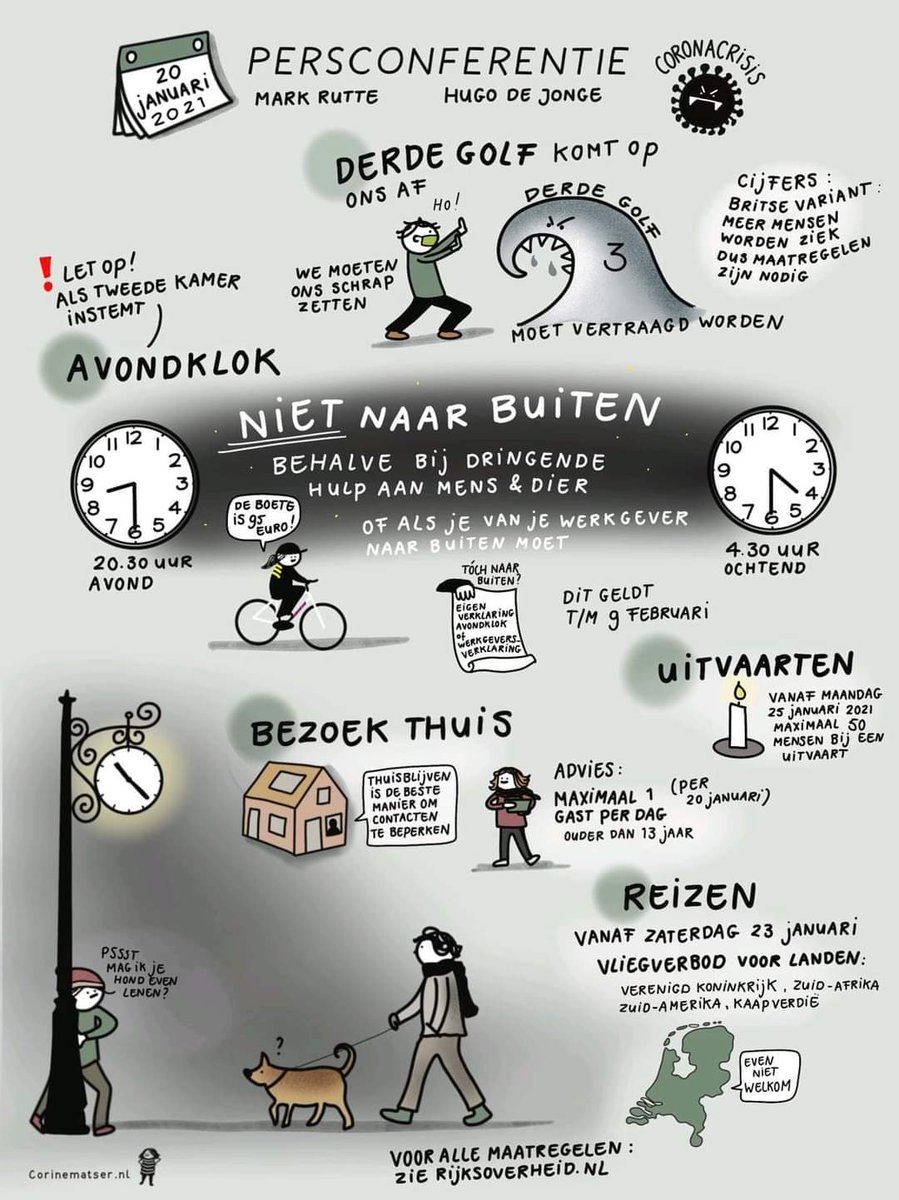 20
JANUARI
2021
PERSCONFERENTIE
MARK RUTTE HUGO DE JONGE
CORONACRISIS
DERDE GOLF KOMT OP
ONS AF
Ho!
DERDE GOLF
3
WE MOETEN
ONS SCHRAP
ZETTEN
MOET VERTRAAGD WORDEN
CIJFERS:
BRITSE VARIANT:
MEER MENSEN
WORDEN ZIEK
DUS MAATREGELEN
ZIJN NODIG
! LET OP!
ALS TWEEDE KAMER
INSTEMT
AVONDKLOK
NIET NAAR BUITEN
BEHALVE BIJ DRINGENDE
HULP AAN MENS & DIER
OF ALS JE VAN JE WERKGEVER
NAAR BUITEN MOET
12
1
2
3
4
5
6
7
8
9
10
11
20.30 UUR
AVOND
DE BOETE
IS 95
EURO!
TÓCH NAAR
BUITEN?
EIGEN
VERKLARING
AVONDKLOK
OF
WERKGEVERS-
VERKLARING
DIT GELDT
T/M 9 FEBRUARI
12
1
2
3
4
5
6
7
8
9
10
11
4.30 UUR
OCHTEND
UITVAARTEN
VANAF MAANDAG
25 JANUARI 2021
MAXIMAAL 50
MENSEN BIJ EEN
UITVAART
BEZOEK THUIS
THUISBLIJVEN
IS DE BESTE
MANIER OM
CONTACTEN
TE BEPERKEN
ADVIES:
MAXIMAAL 1 (PER
GAST PER DAG 20 JANUARI)
OUDER DAN 13 JAAR
REIZEN
VANAF ZATERDAG 23 JANUARI
VLIEGVERBOD VOOR LANDEN:
VERENIGD KONINKRIJK, ZUID-AFRIKA
ZUID-AMERIKA, KAAPVERDIË
EVEN
NIET
WELKOM
PSSST
MAG IK JE
HOND EVEN
LENEN?
?
VOOR ALLE MAATREGELEN:
ZIE RIJKSOVERHEID.NL
Corinematser.nl